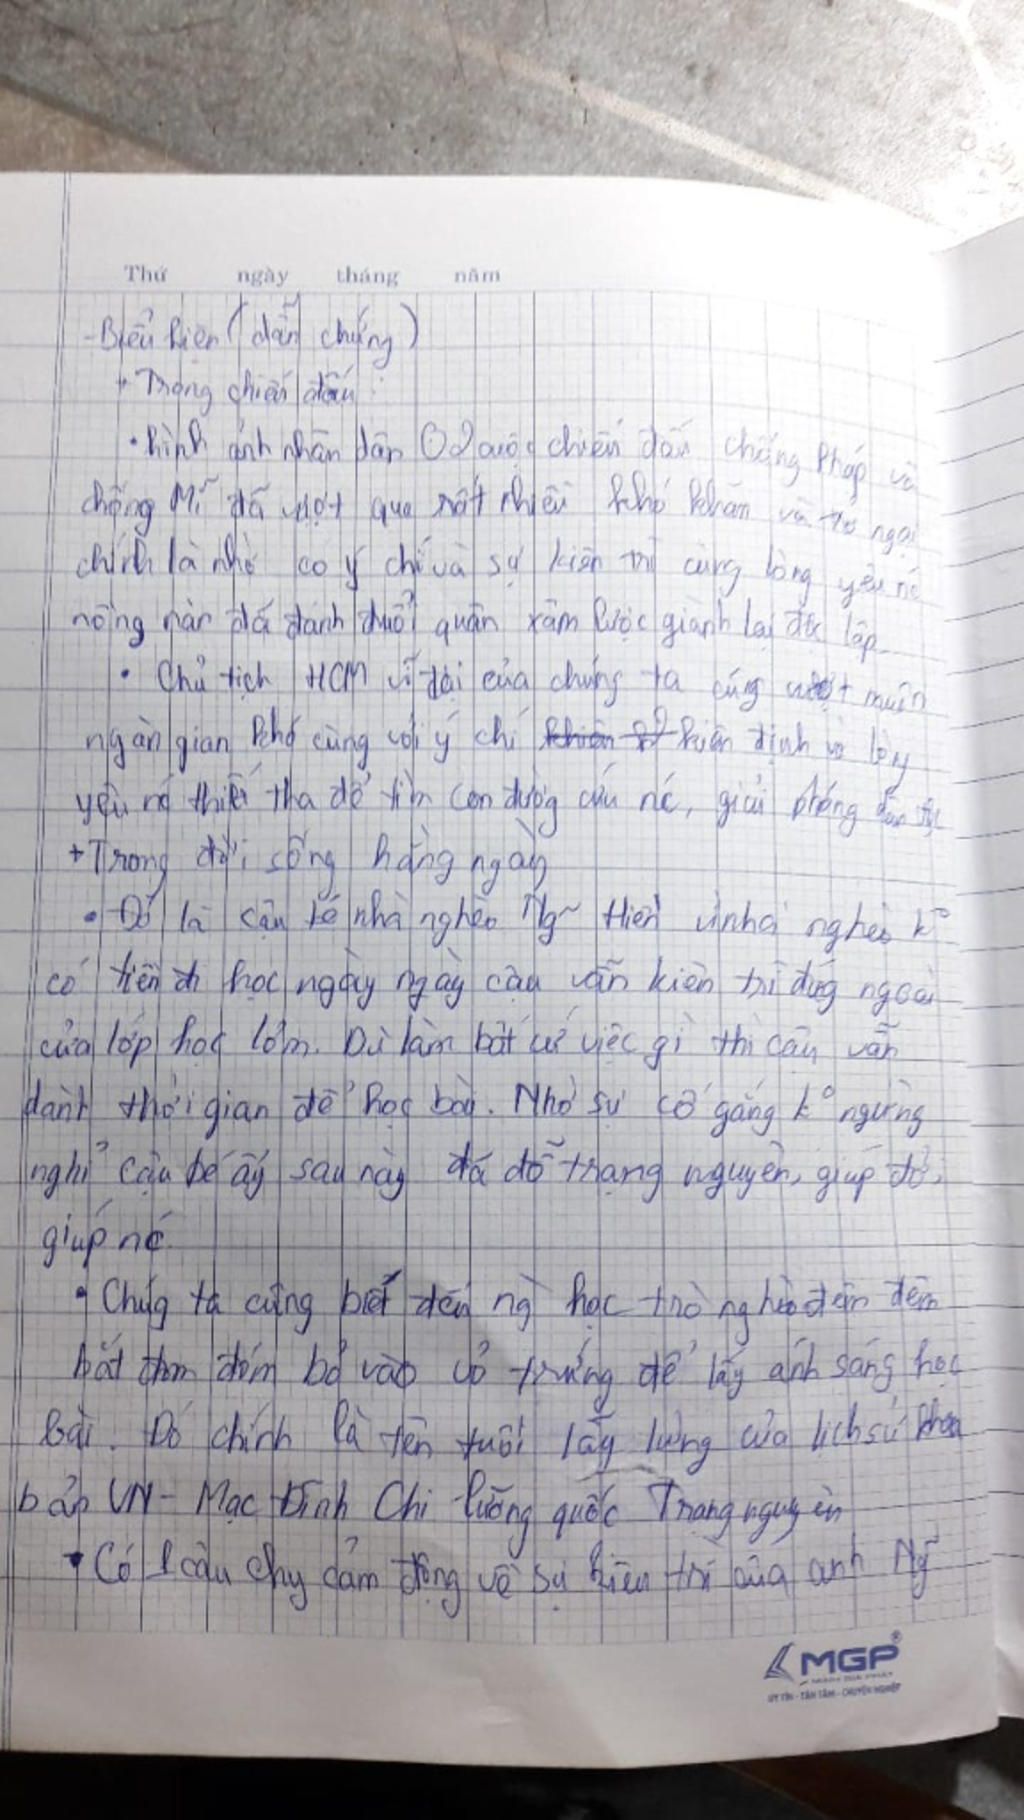 Thứ ngày tháng năm
- Biểu hiện (dẫn chứng)
+ Trong chiến đấu:
• hình ảnh nhân dân 2 cuộc chiến đấu chống Pháp và
chống Mĩ đã vượt qua rất nhiều khó khăn và trở ngại
chính là nhờ có ý chí và sự kiên trì cùng lòng yêu nc
nồng nàn đã đánh đuổi quân xâm lược giành lại độc lập
• Chủ tịch HCM vĩ đại của chúng ta cũng vượt muôn
ngàn gian khó cùng với ý chí kiên định và lòng
yêu nc thiết tha để tìm con đường cứu nc, giải phóng dân tộc
+ Trong đời sống hằng ngày
• Đó là cậu bé nhà nghèo Ng~ Hiền vì nhà nghèo k°
có tiền đi học ngày ngày cậu vẫn kiên trì đứg ngoài
cửa lớp học lỏm. Dù làm bất cứ việc gì thì cậu vẫn
dành thời gian để học bài. Nhờ sự cố gắng k° ngừng
nghỉ cậu bé ấy sau này đã đỗ trạng nguyên, giúp đời,
giúp nc.
• Chúg ta cũng biết đến ng` học trò nghèo đêm đêm
bắt đom đóm bỏ vào vỏ trứng để lấy ánh sáng học
bài. Đó chính là tên tuổi lẫy lừng của lịch sử khoa
bản VN - Mạc Đĩnh Chi lưỡng quốc Trạng nguyên
• Có 1 câu chuỵ cảm động về sự kiên trì của anh Ng~
MGP®
UY TÍN - TẬN TÂM - CHUYÊN NGHIỆP